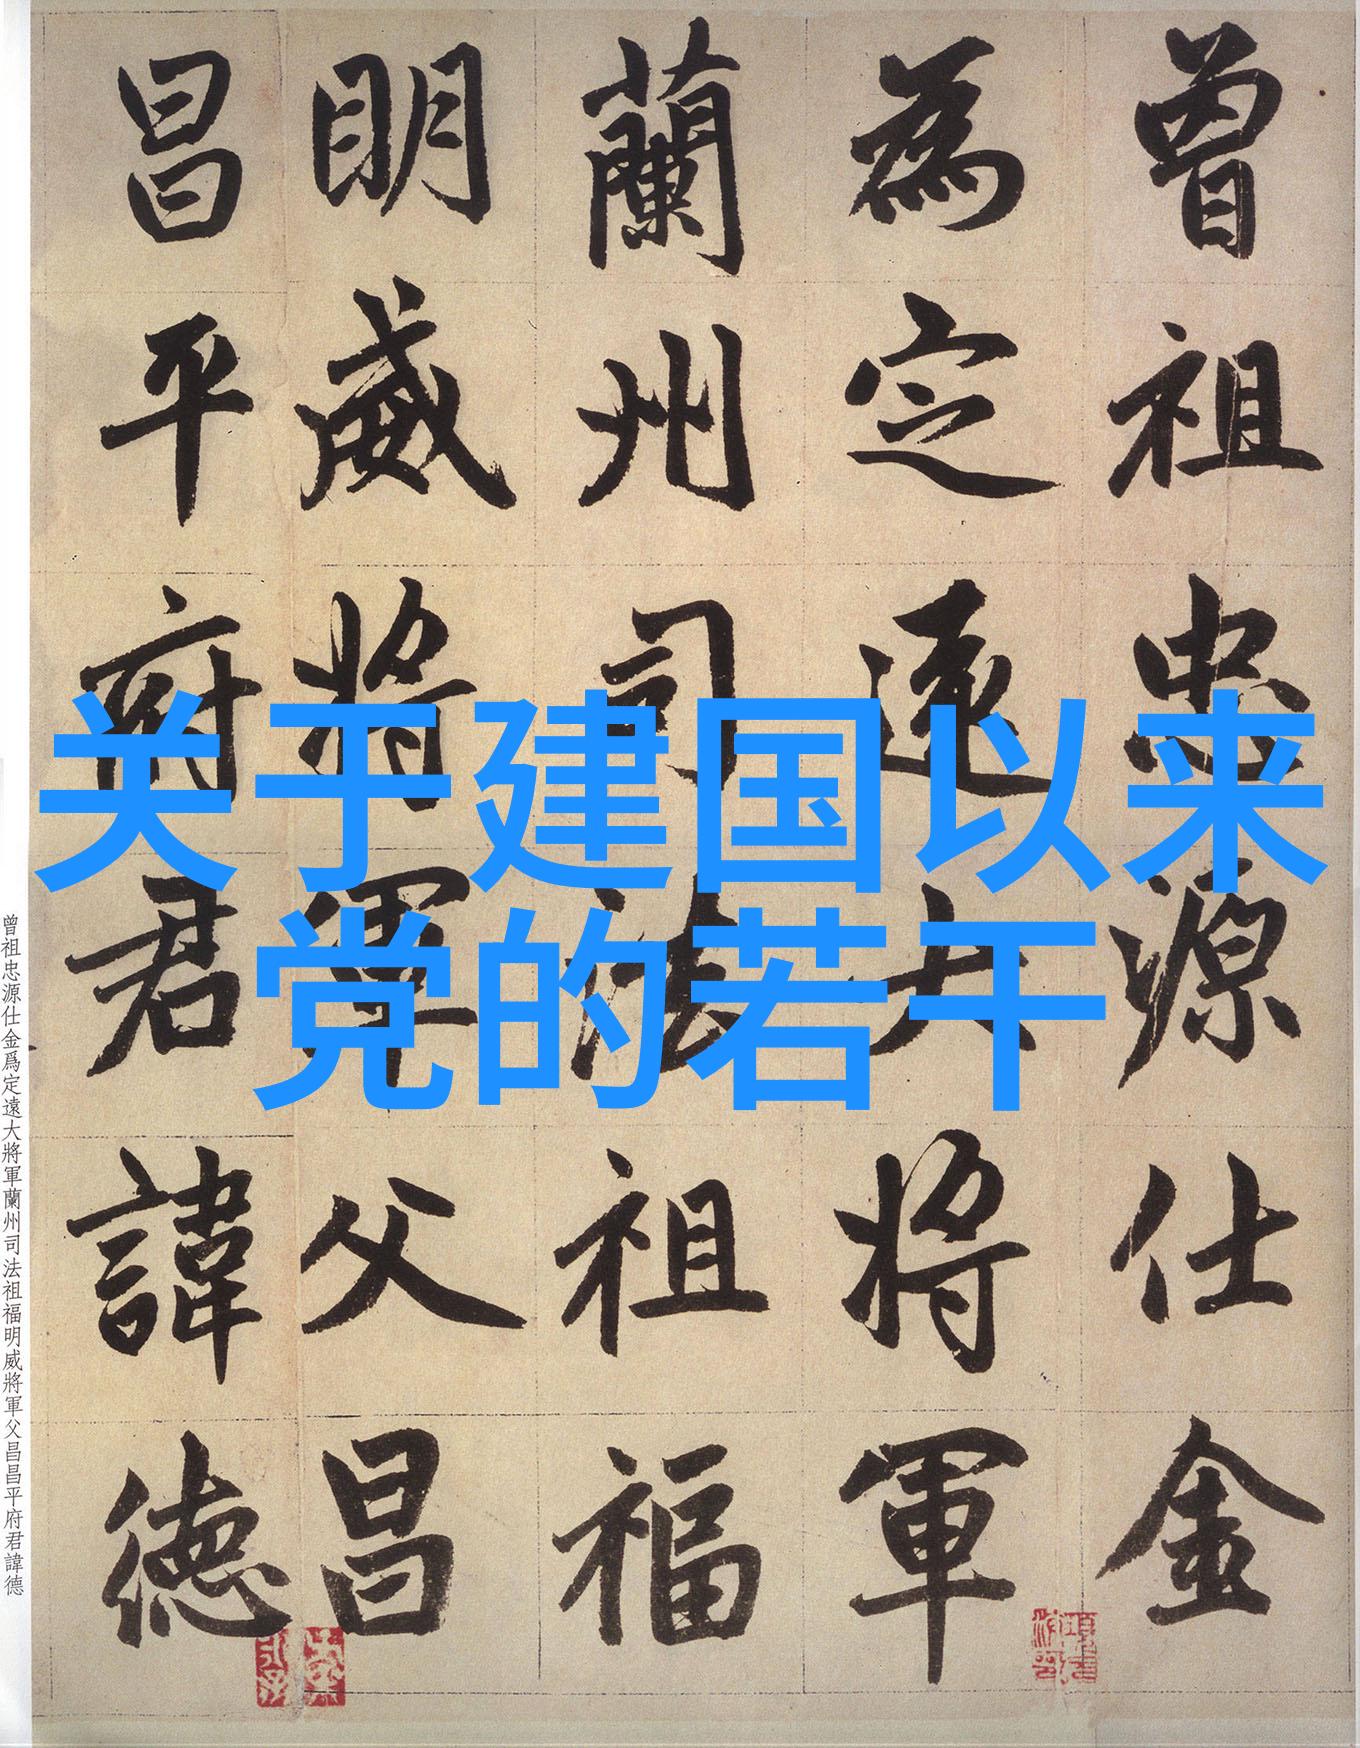 关于建国以来
党的若干
曾祖忠源仕金
為定遠大将軍
蘭州司法祖福
明威将軍父昌
昌平府君諱德
曾祖忠源仕金爲定遠大將軍蘭州司法祖福明威將軍父昌昌平府君諱德